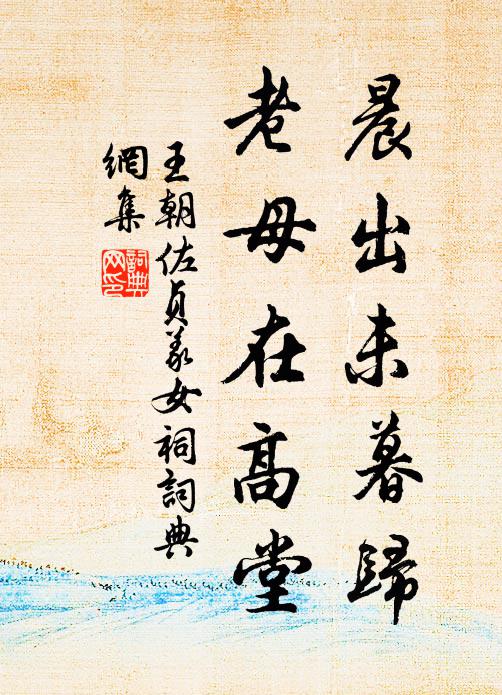 晨出未暮歸
老母在高堂
王朝佐貞義女祠詞典
網集
詞典
网印